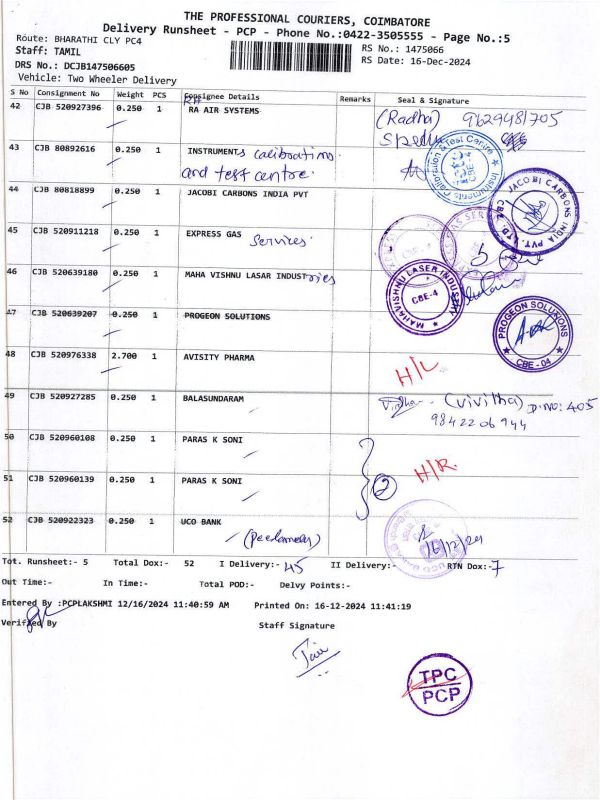 THE PROFESSIONAL COURIERS, COIMBATORE
Delivery Runsheet - PCP - Phone No.:0422-3505555 - Page No.:5
Route: BHARATHI CLY PC4
Staff: TAMIL
RS No.: 1475066
DRS No.: DCJB147506605
RS Date: 16-Dec-2024
Vehicle: Two Wheeler Delivery
S No Consignment No Weight PCS Consignee Details Remarks Seal & Signature
42 CJB 520927396 0.250 1 RA AIR SYSTEMS (Radha) 9629481705
43 CJB 80892616 0.250 1 INSTRUMENTS calibrations
and test centre.
Instruments Calibration & Test Centre
44 CJB 80818899 0.250 1 JACOBI CARBONS INDIA PVT
JACOBI CARBONS INDIA PVT. LTD. CBE.
45 CJB 520911218 0.250 1 EXPRESS GAS Services.
46 CJB 520639180 0.250 1 MAHA VISHNU LASAR INDUSTries
MAHAVISHNU LASER INDUSTRY CBE-4
47 CJB 520639207 0.250 1 PROGEON SOLUTIONS
PROGEON SOLUTIONS CBE-04
48 CJB 520976338 2.700 1 AVISITY PHARMA H/L
49 CJB 520927285 0.250 1 BALASUNDARAM (Vivitha) D.NO: 405
9842206944
50 CJB 520960108 0.250 1 PARAS K SONI
2 H/R.
51 CJB 520960139 0.250 1 PARAS K SONI
52 CJB 520922323 0.250 1 UCO BANK
(Peelamedu) 16/12/24
Tot. Runsheet:- 5 Total Dox:- 52 I Delivery:- 45 II Delivery:- RTN Dox:- 7
Out Time:- In Time:- Total POD:- Delvy Points:-
Entered By :PCPLAKSHMI 12/16/2024 11:40:59 AM Printed On: 16-12-2024 11:41:19
Verified By Staff Signature
TPC
PCP